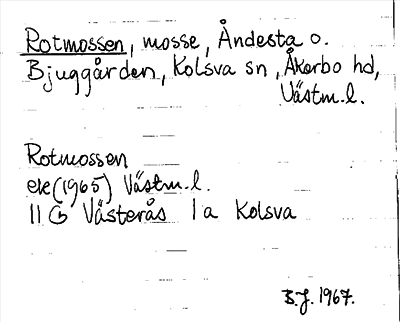 Rotmossen, mosse, Åndesta o.
Bjuggården, Kolsva sn, Åkerbo hd,
Västm.l.
Rotmossen
eK(1965) Västm.l.
11G Västerås 1a Kolsva
B.J. 1967.